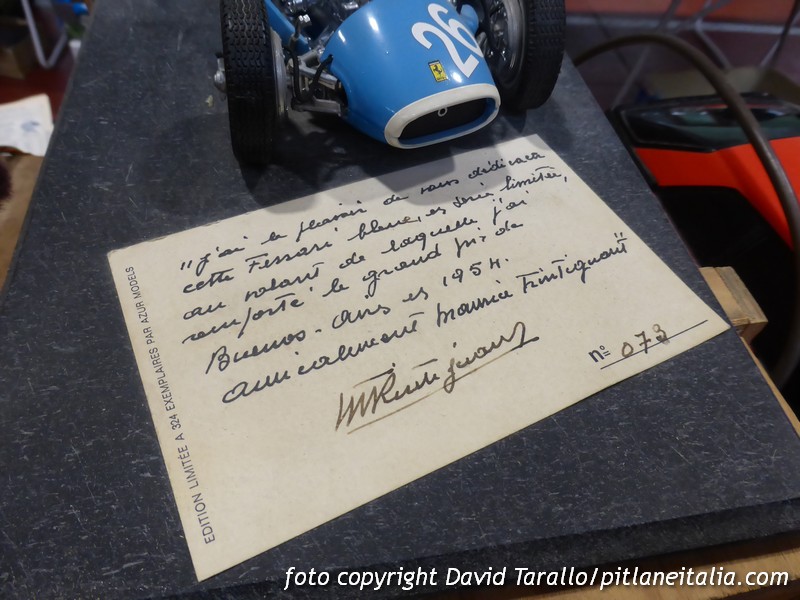 26
"j'ai le plaisir de vous dédicacer
cette Ferrari bleue, en série limitée,
au volant de laquelle j'ai
remporté le grand prix de
Buenos-Aires en 1954.
amicalement maurice Trintignant"
n° 073
EDITION LIMITÉE A 324 EXEMPLAIRES PAR AZUR MODELS
foto copyright David Tarallo/pitlaneitalia.com